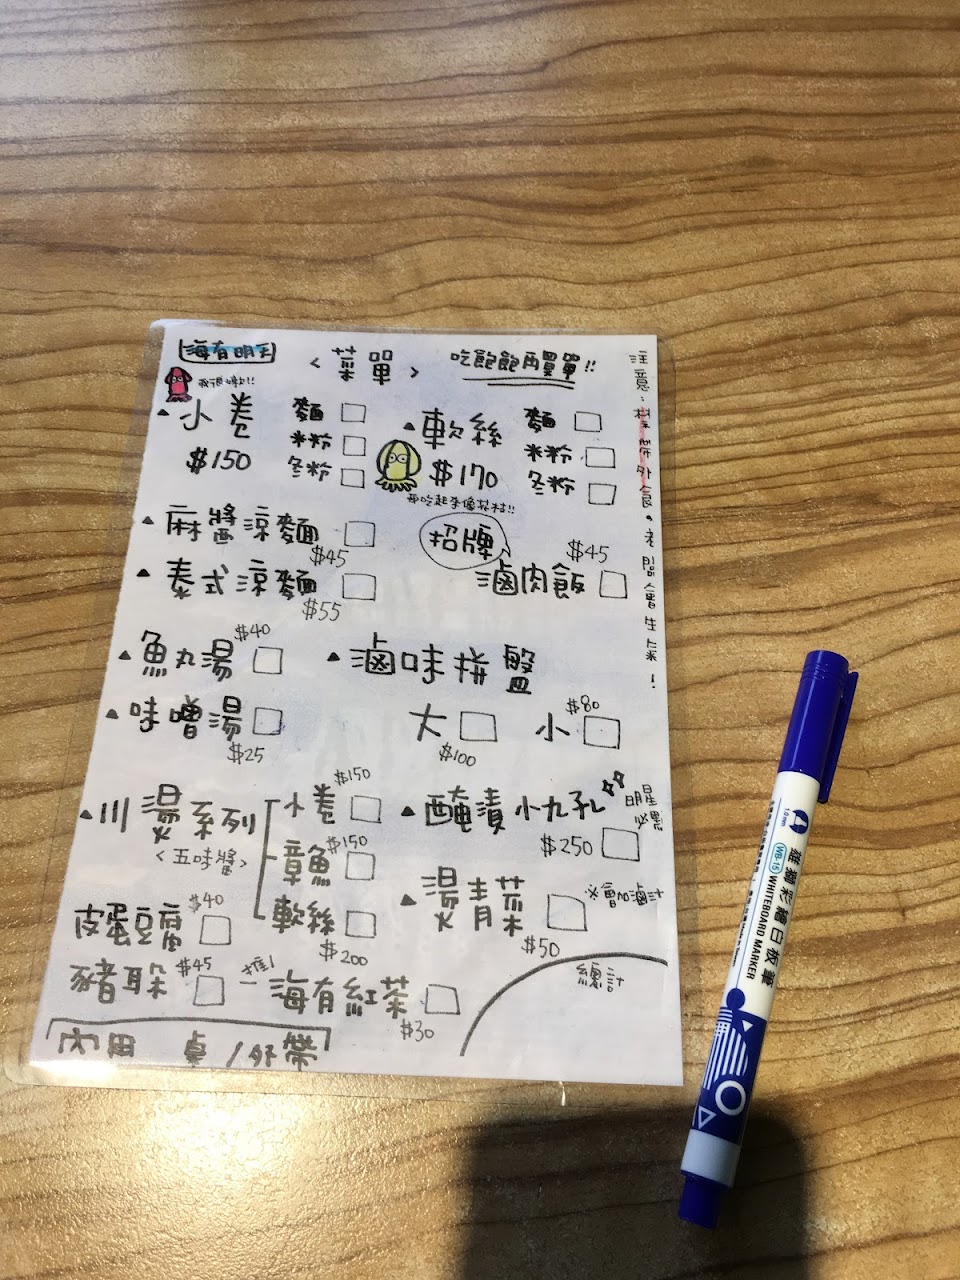 海有明天
<菜單>
吃飽飽再買單!!
▲小卷 $150
麵 □
米粉 □
冬粉 □
▲軟絲 $170
麵 □
米粉 □
冬粉 □
招牌
▲麻醬涼麵 □ $45
▲泰式涼麵 □ $55
滷肉飯 □ $45
▲魚丸湯 □ $40
▲味噌湯 □ $25
▲滷味拼盤
大 □ $100
小 □ $80
▲川燙系列
<五味醬>
小卷 □ $150
章魚 □ $150
軟絲 □ $200
▲醃漬小九孔
$250 □
▲燙青菜 □ $50
※會加滷汁
皮蛋豆腐 □ $40
豬耳朵 □ $45
推! 海有紅茶 □ $30
總計
內用 桌/外帶
注意:禁帶外食。老闆會生氣!
雄獅彩繪白板筆
WB-15 WHITEBOARD MARKER